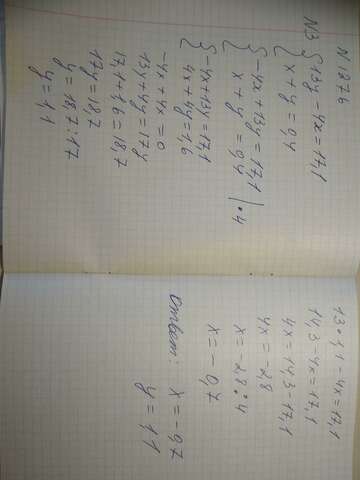 N 1876
N3 { 13y - 4x = 17,1
x + y = 0,4
{ -4x + 13y = 17,1
x + y = 0,4 | •4
{ -4x + 13y = 17,1
4x + 4y = 1,6
-4x + 4x = 0
13y + 4y = 17y
17,1 + 1,6 = 18,7
17y = 18,7
y = 18,7 : 17
y = 1,1
13 • 1,1 - 4x = 17,1
14,3 - 4x = 17,1
4x = 14,3 - 17,1
4x = -2,8
x = -2,8 : 4
x = -0,7
Ответ: x = -0,7
y = 1,1